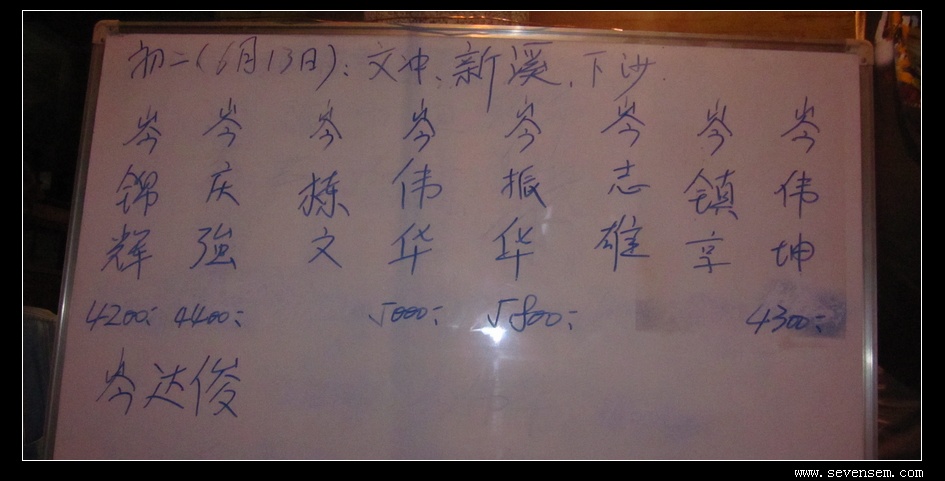 初二(6月13日)：文冲、新溪、下沙.
岑锦辉 岑庆強 岑栋文 岑伟华 岑振华 岑志雄 岑镇享 岑伟坤
4200： 4400： 5000： 5800： 4300：
岑达俊
www.sevensem.com